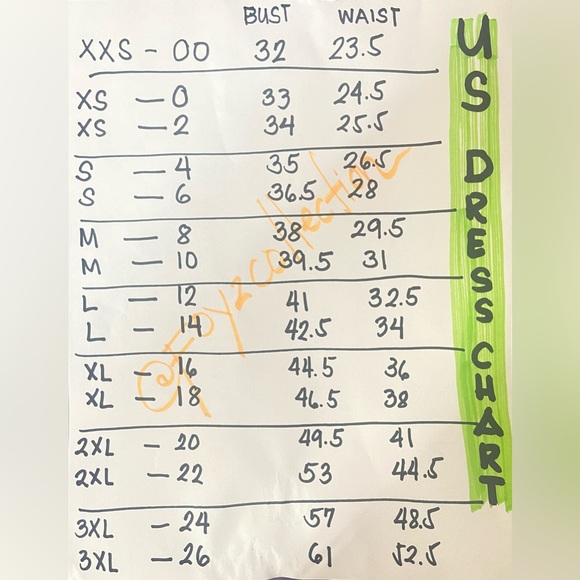 BUST WAIST
XXS - 00 32 23.5
XS - 0 33 24.5
XS - 2 34 25.5
S - 4 35 26.5
S - 6 36.5 28
M - 8 38 29.5
M - 10 39.5 31
L - 12 41 32.5
L - 14 42.5 34
XL - 16 44.5 36
XL - 18 46.5 38
2XL - 20 49.5 41
2XL - 22 53 44.5
3XL - 24 57 48.5
3XL - 26 61 52.5
US DRESS CHART
@Foyzcollection